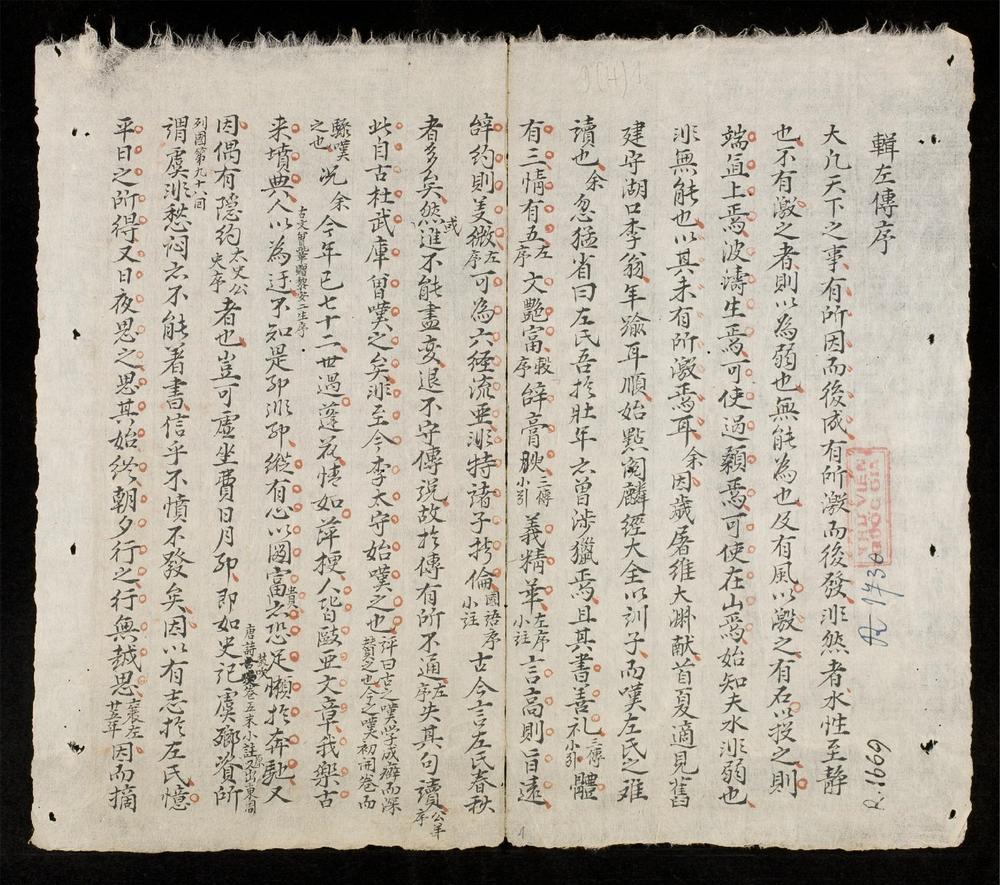 輯左傳序
大凡天下之事有所因而後成有所激而後發非然者水性至静
也不有激之者則以為弱也無能為也及有風以激之有石以投之則
端直上焉波濤生焉可使過顙焉可使在山焉始知夫水非弱也
非無能也以其未有所激焉耳余因歲屠維大淵献首夏適見舊
建守湖口李翁年踰耳順始點閱麟經大全以訓子而嘆左氏之难
讀也余忽猛省曰左氏吾於壯年亦曾涉獵焉且其書善礼三傳小引體
有三情有五左序文艷富穀序辞膏腴三傳小引義精華左序小註言高則旨遠
辞約則美微左序可為六経流亜非特諸子抗倫國語序小註古今言左氏春秋
者多矣然或進不能盡变退不守傳説故於傳有所不通左序失其句讀公羊序
此自古杜武庫曾嘆之矣非至今李太守始嘆之也評曰古之嘆学成癖而深賛之也今之嘆初開卷而
驟嘆之也况余今年已七十二世過蓬花情如萍梗人皆歐亜文章我樂古
来墳典人以為迂不知是耶非耶縱有心以圖富貴亦恐足懶於奔馳又
古文曾鞏贈黎安二生序
唐詩巻五末小註又出東周
列國第九十八回
因偶有隱約太史公史序者也豈可虚坐費日月耶即如史記虞鄉資所
謂虞非愁闷亦不能著書信乎不憤不發矣因以有志於左氏憶
平日之所得又日夜思之思其始終朝夕行之行無越思襄左廿五年因而摘
THƯ VIỆN
QUỐC GIA
R 1730
R.1669
1